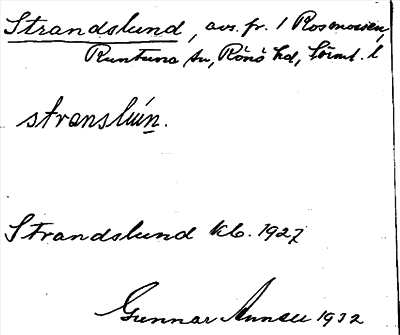 Strandslund, avs. fr. 1 Rosenosien,
Runtuna sn, Rönö hd, Sörml. l
stranslún.
Strandslund kb. 1927
Gunnar 1932